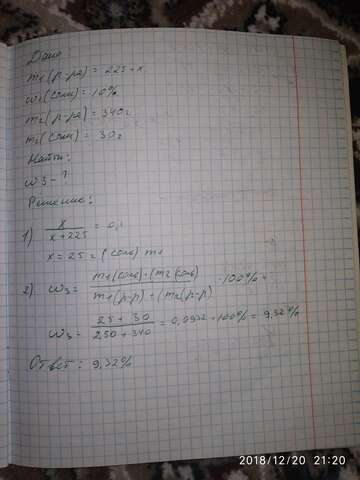 Дано:
m₁(р-ра) = 225+x
ω₁(соли) = 10%
m₂(р-ра) = 340г
m₂(соли) = 30г
Найти:
ω3 - ?
Решение:
1) x / x+225 = 0,1
x = 25 = (соль) m₁
2) ω₃ = m₁(соль)+(m₂(соль) / m₁(р-р)+(m₂(р-р) · 100% =
ω₃ = 25+30 / 250+340 = 0,0932·100% = 9,32%
Ответ: 9,32%
2018/12/20 21:20